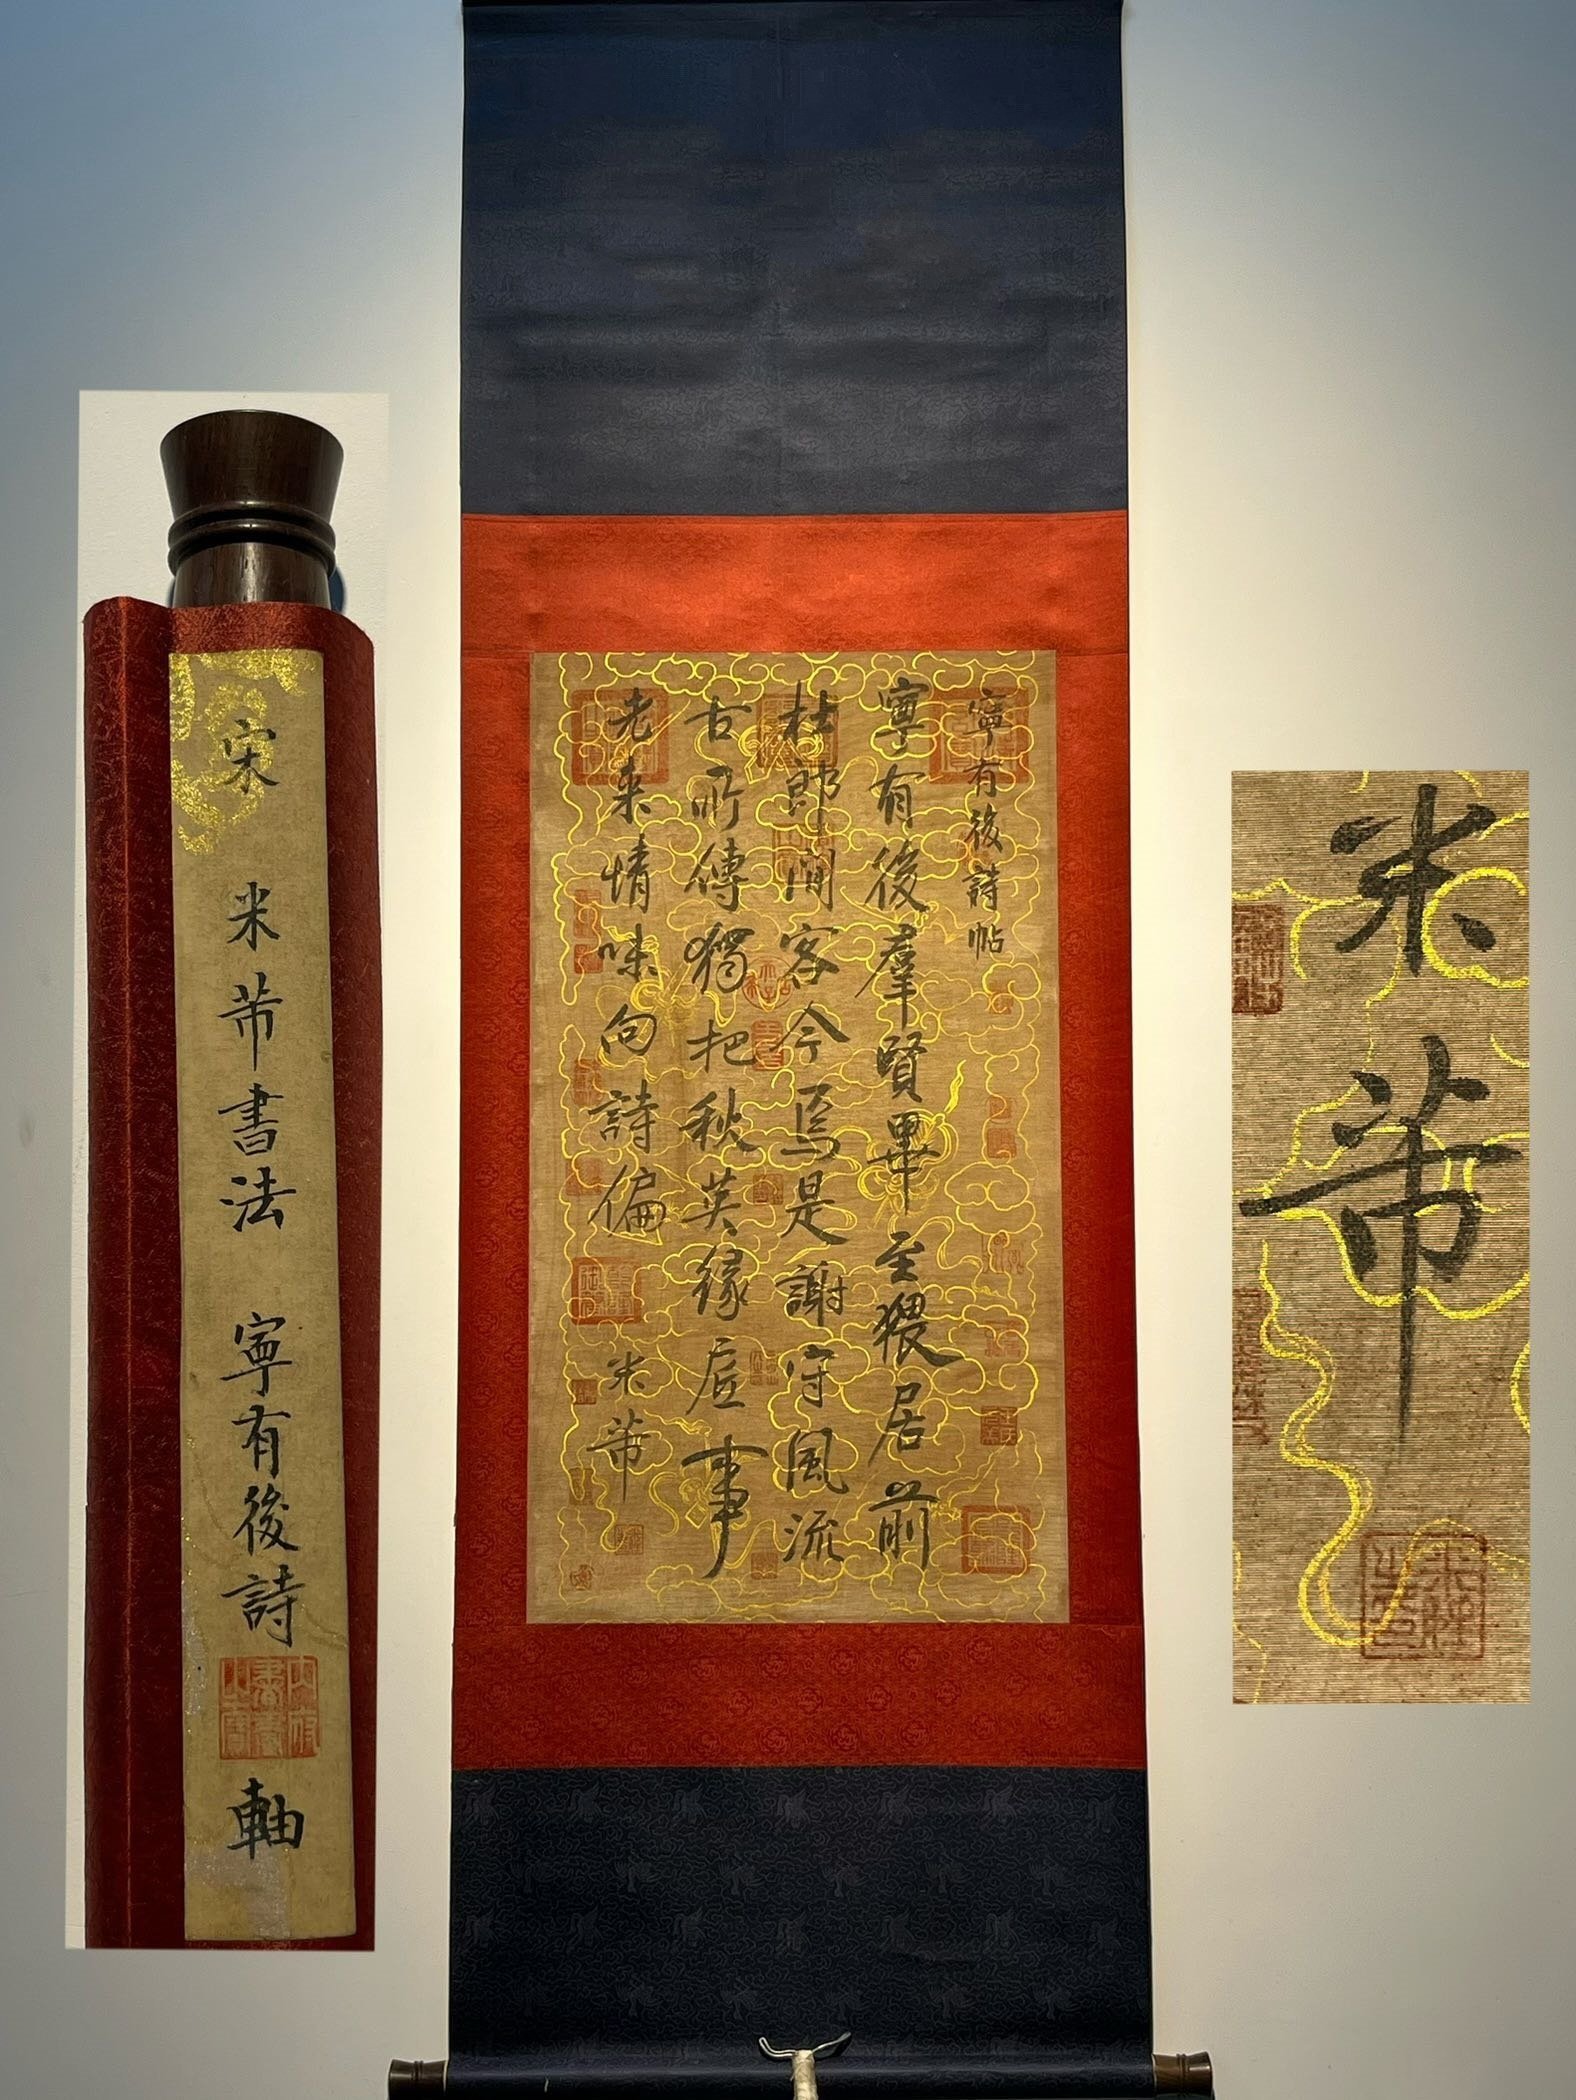 宋 米芾書法 寧有後詩 軸
內府書畫之寶
寧有後詩帖
寧有後羣賢畢至猥居前
杜郎閒客今焉是謝守風流
古所傳獨把秋英緣底事
老來情味向詩偏
米芾
米芾